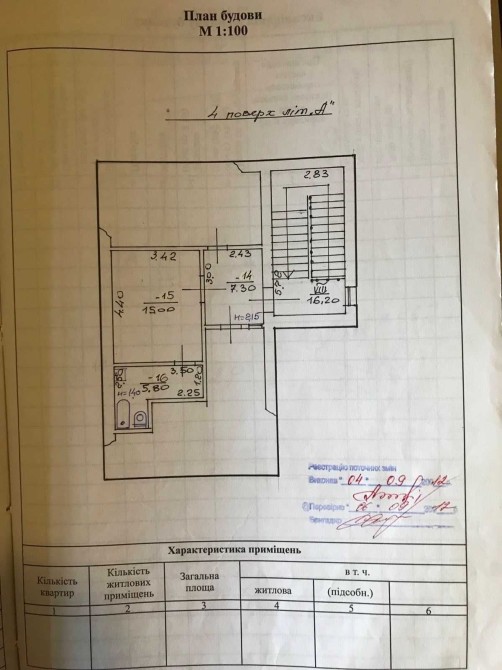 План будови
М 1:100
4 поверх літ. „А"
2.83
3.42
2.43
3.00
-14
7.30
4.40
-15
15.00
VIII
16,20
3.50
-16
5.80
1.20
2.25
Реєстрацію поточних змін
Виконав "04" 09 12
Перевірив 09 12
Характеристика приміщень
Кількість квартир
Кількість житлових приміщень
Загальна площа
в т. ч.
житлова
(підсобн.)
1 2 3 4 5 6